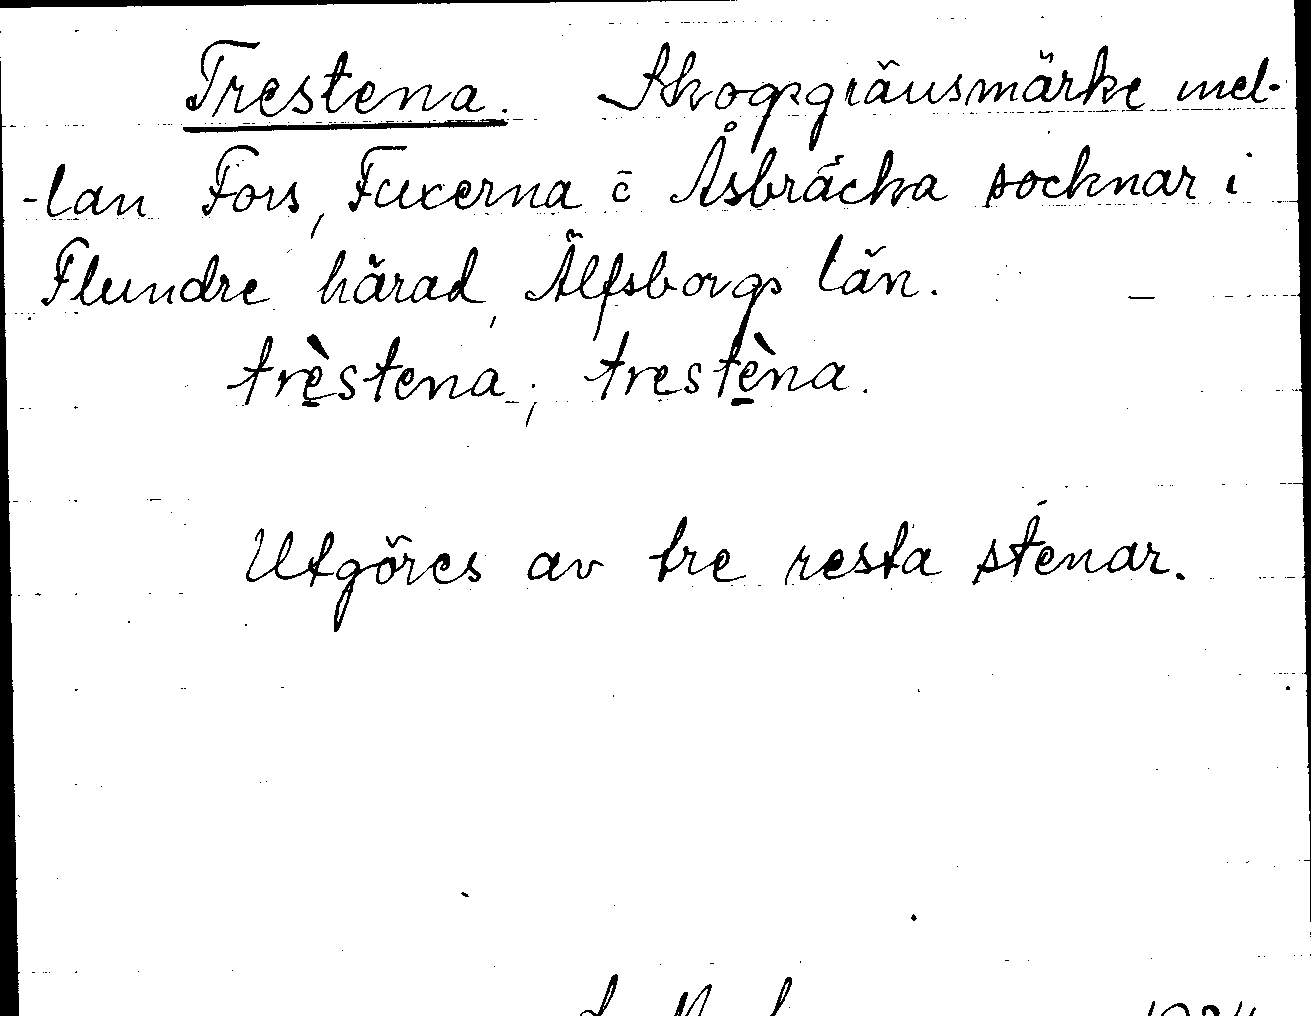 Trestena. Skogsgränsmärke mel-
-lan Fors, Fuxerna c̄ Åsbräcka socknar i
Flundre härad, Älfsborgs län. –
trèstena; trestèna.
Utgöres av tre resta stenar.